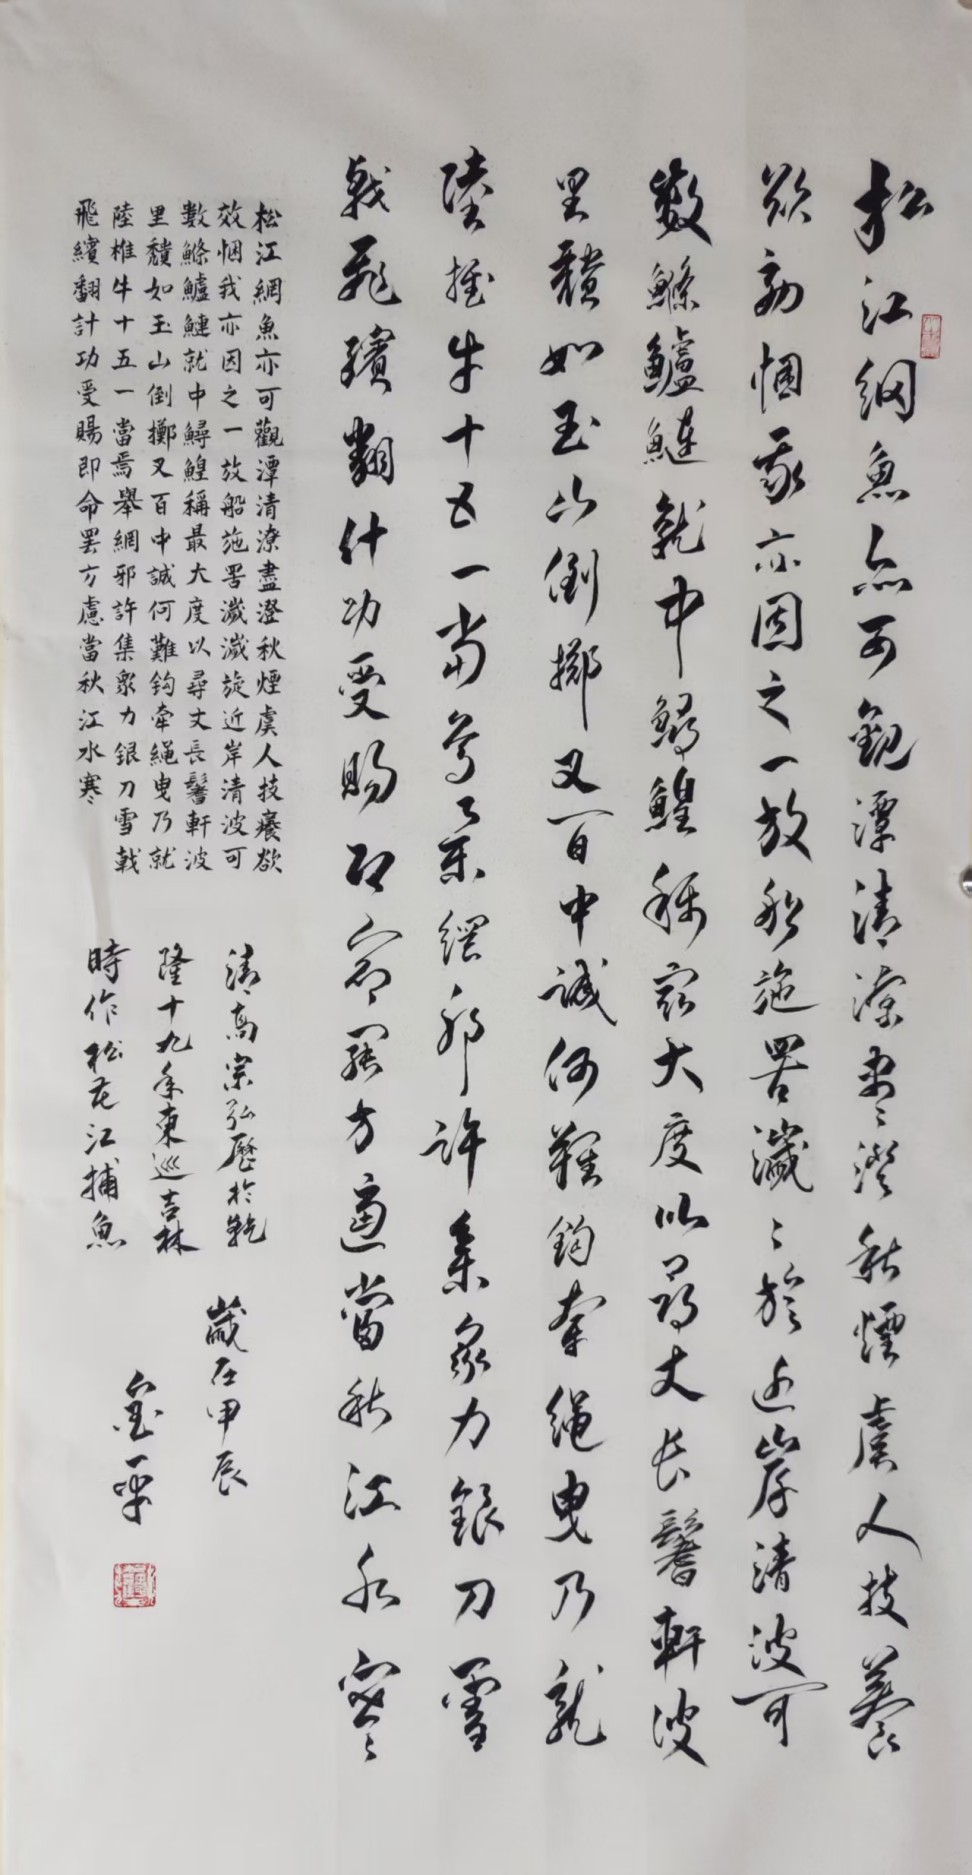 松江網魚亦可觀潭清潦盡澄秋煙虞人技養
欲効悃我亦因之一放船施罟濊〻旋近岸清波可
數鰷鱸鰱就中鱘鰉稱最大度以尋丈長鬐軒波
里穨如玉山倒擲叉百中誠何難鈎牽繩曳乃就
陸椎牛十五一當焉舉網邪許集衆力銀刀雪
戟飛繽翻計功受賜即命罷方適當秋江水寒
松江網魚亦可觀潭清潦盡澄秋煙虞人技癢欲
效悃我亦因之一放船施罟濊濊旋近岸清波可
數鰷鱸鰱就中鱘鰉稱最大度以尋丈長鬐軒波
里穨如玉山倒擲叉百中誠何難鈎牽繩曳乃就
陸椎牛十五一當焉舉網邪許集衆力銀刀雪戟
飛繽翻計功受賜即命罷方慮當秋江水寒
清高宗弘歷於乾
隆十九年東巡吉林
時作松花江捕魚
歲在甲辰
金平